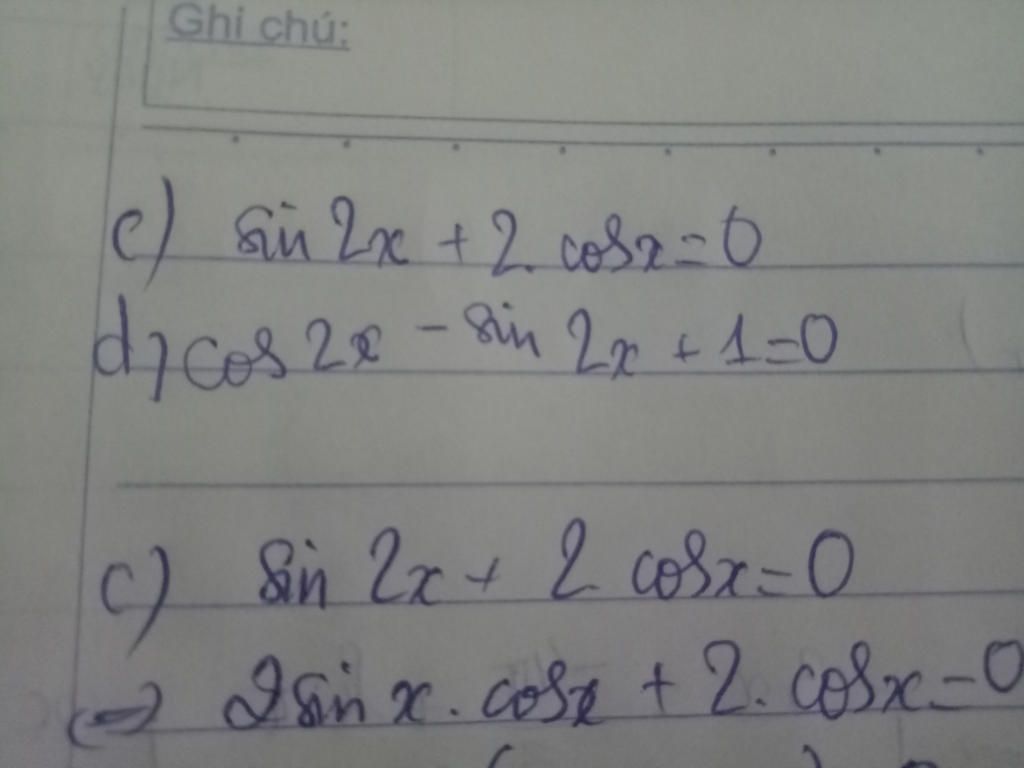 Ghi chú:
c) sin 2x + 2. cosx = 0
d) cos 2x - sin 2x + 1 = 0
c) sin 2x + 2 cosx = 0
<=> 2 sin x. cosx + 2. cosx = 0